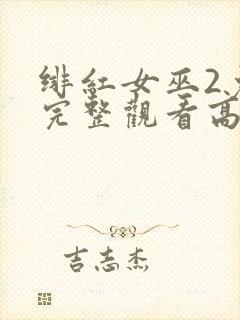 绯紅女巫2
完整觀看高
吉志杰